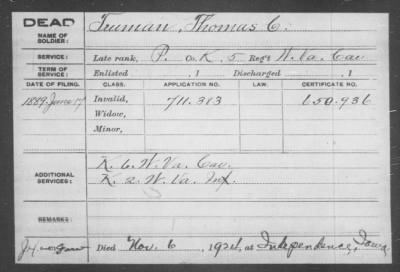 DEAD
NAME OF SOLDIER:
Truman, Thomas C.
SERVICE:
Late rank, P. Co. K, 5 Reg't W. Va. Cav
TERM OF SERVICE:
Enlisted , 1 Discharged , 1
DATE OF FILING. CLASS. APPLICATION NO. LAW. CERTIFICATE NO.
1889. June 17 Invalid, 711.313 650.936
Widow,
Minor,
ADDITIONAL SERVICES:
K. 6. W. Va. Cav.
K. 2. W. Va. Inf.
REMARKS:
Died Nov. 6, 1924, at Independence, Iowa